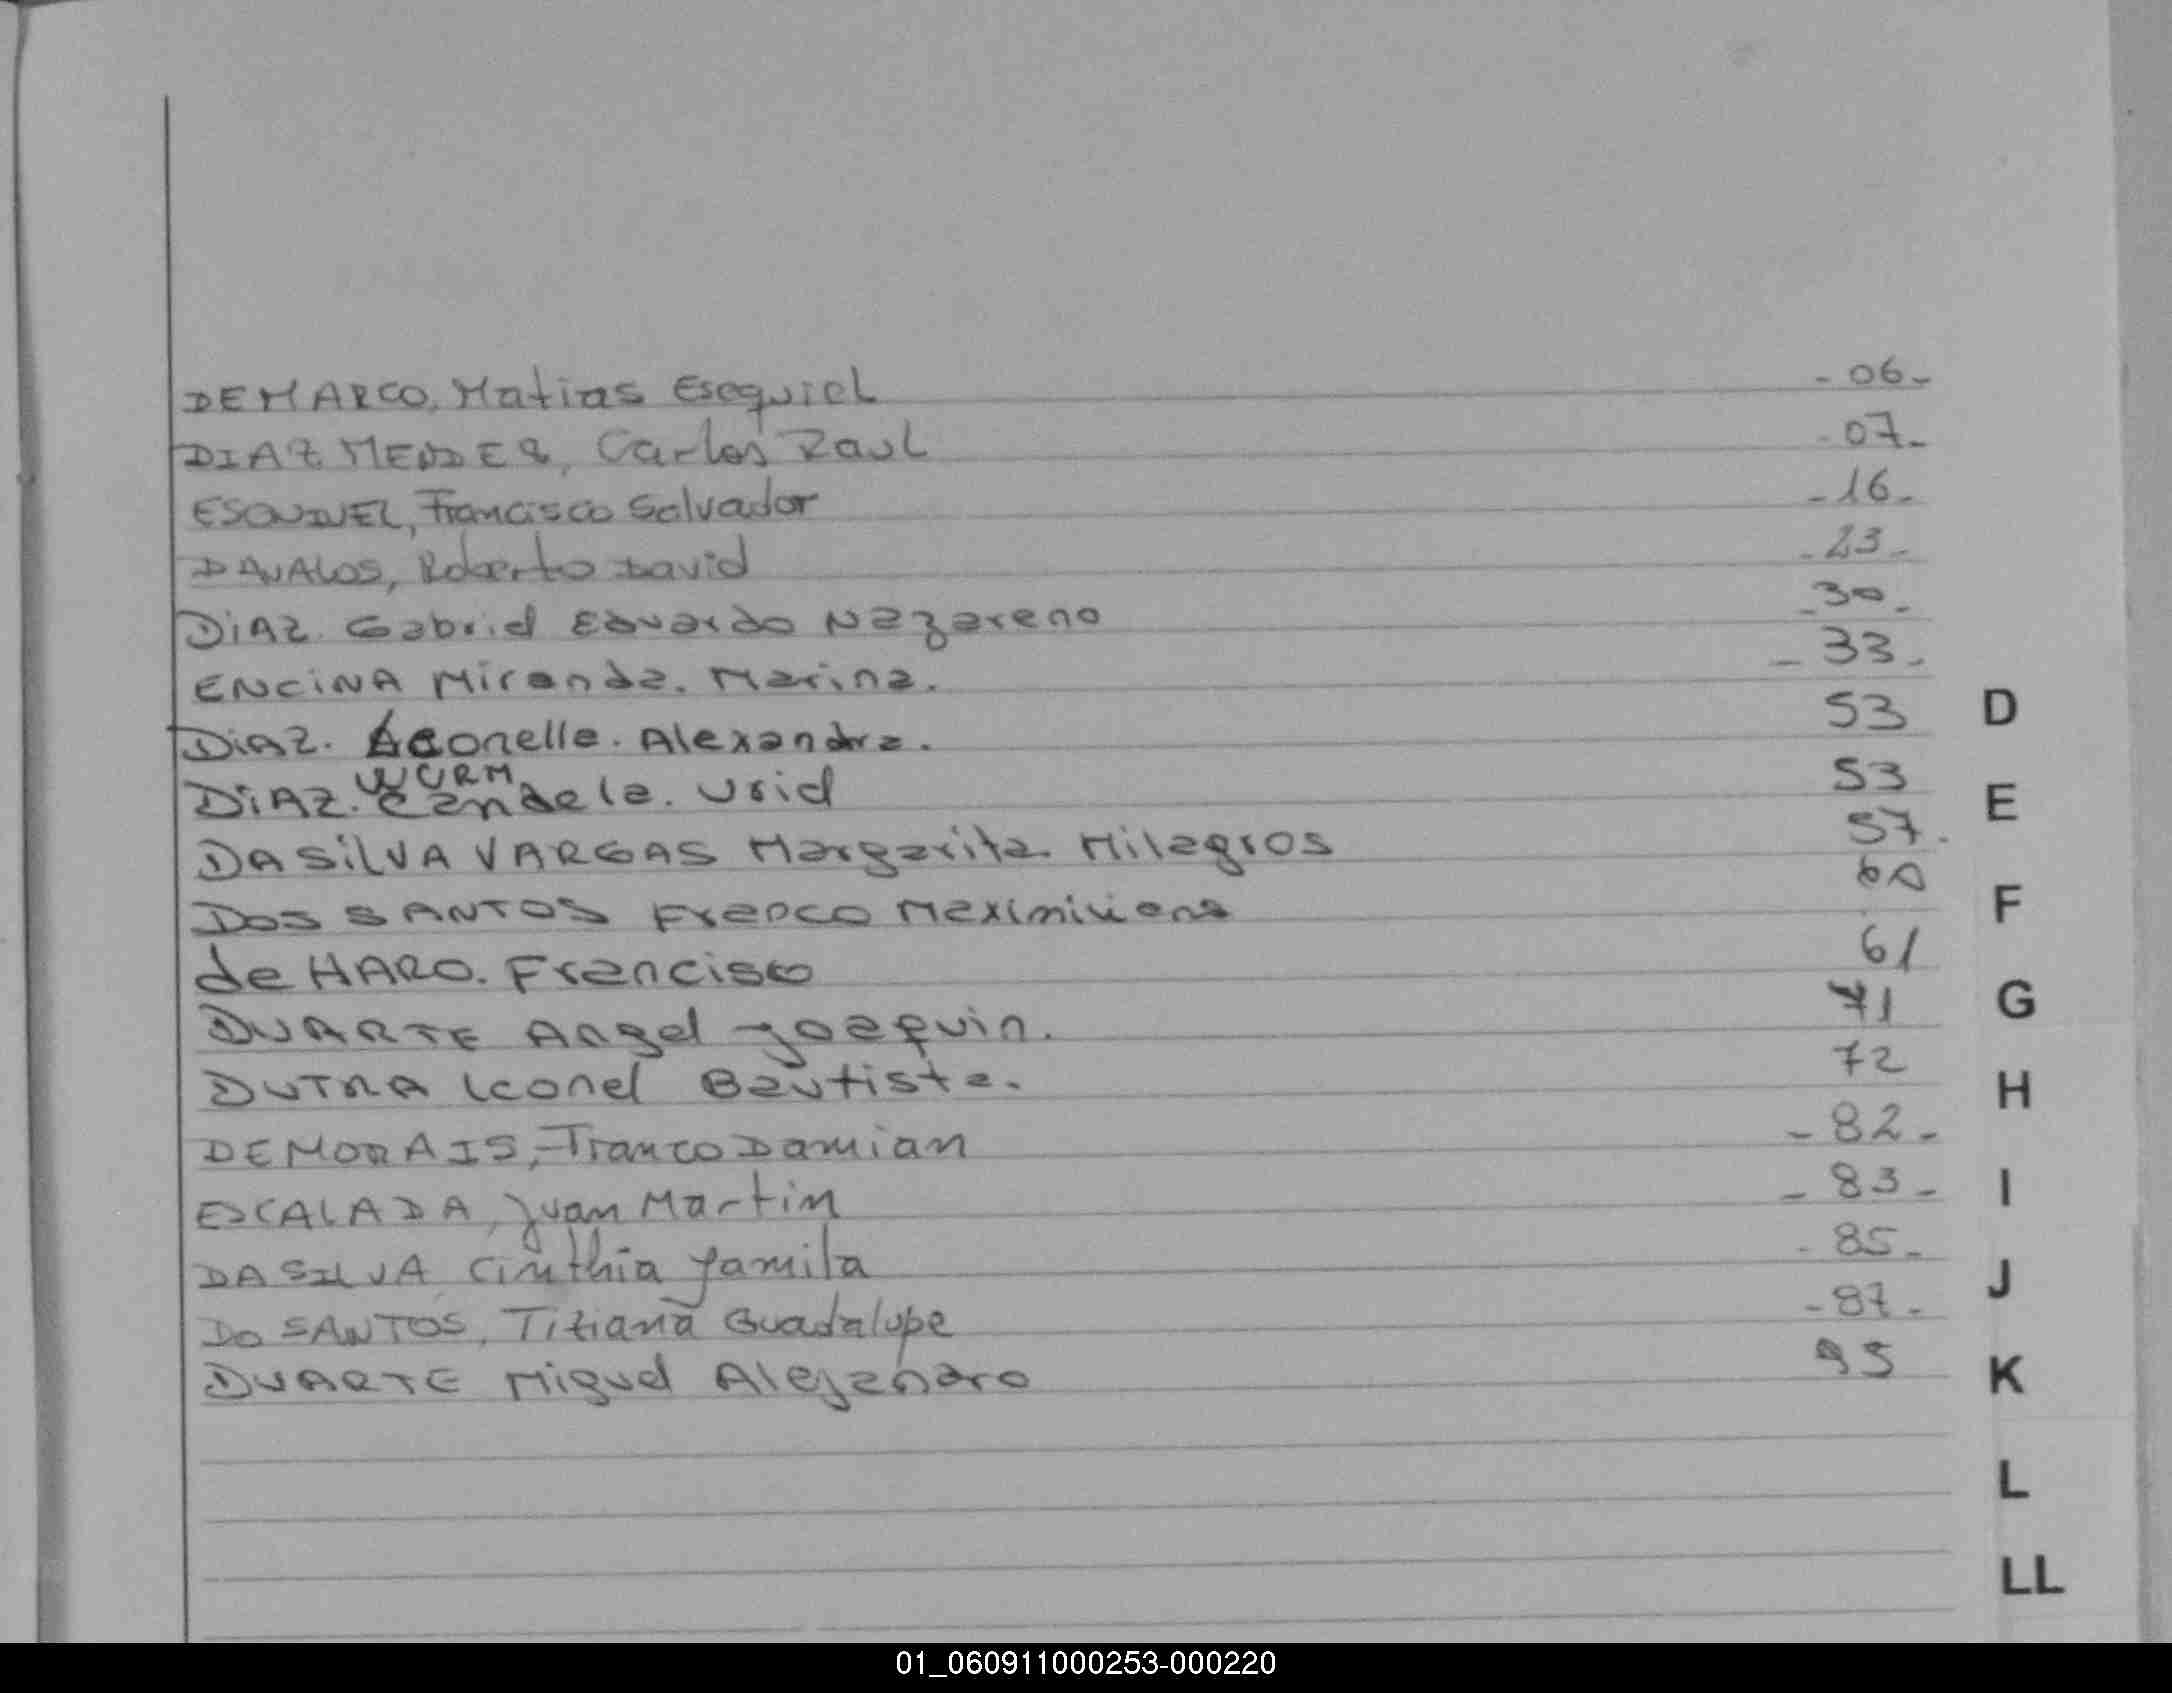 DEMARCO, Matias Esequiel - 06 -
DIAZ MENDEZ, Carlos Raul - 07 -
ESQUIVEL, Francisco Salvador - 16 -
DAVALOS, Roberto David - 23 -
DiAZ. Gabriel Eduardo Nazareno - 30 -
ENCiNA Miranda. Marina. - 33 -
DiAZ. Leonella. Alexandra. 53
D
WURM
DiAZ. Candela. Uriel 53
E
DA SiLVA VARGAS Margarita Milagros 57.
DOS SANTOS Franco Maximiliano 60
F
de HARO. Francisco 61
DUARTE Angel Joaquin. 71
G
DUTRA Leonel Bautista. 72
H
DEMORAIS, Franco Damian - 82 -
ESCALADA, Juan Martin - 83 -
I
DA SILVA Cinthia Yamila - 85 -
J
DO SANTOS, Titiana Guadalupe - 87 -
DUARTE Miguel Alejandro 95
K
L
LL
01_060911000253-000220